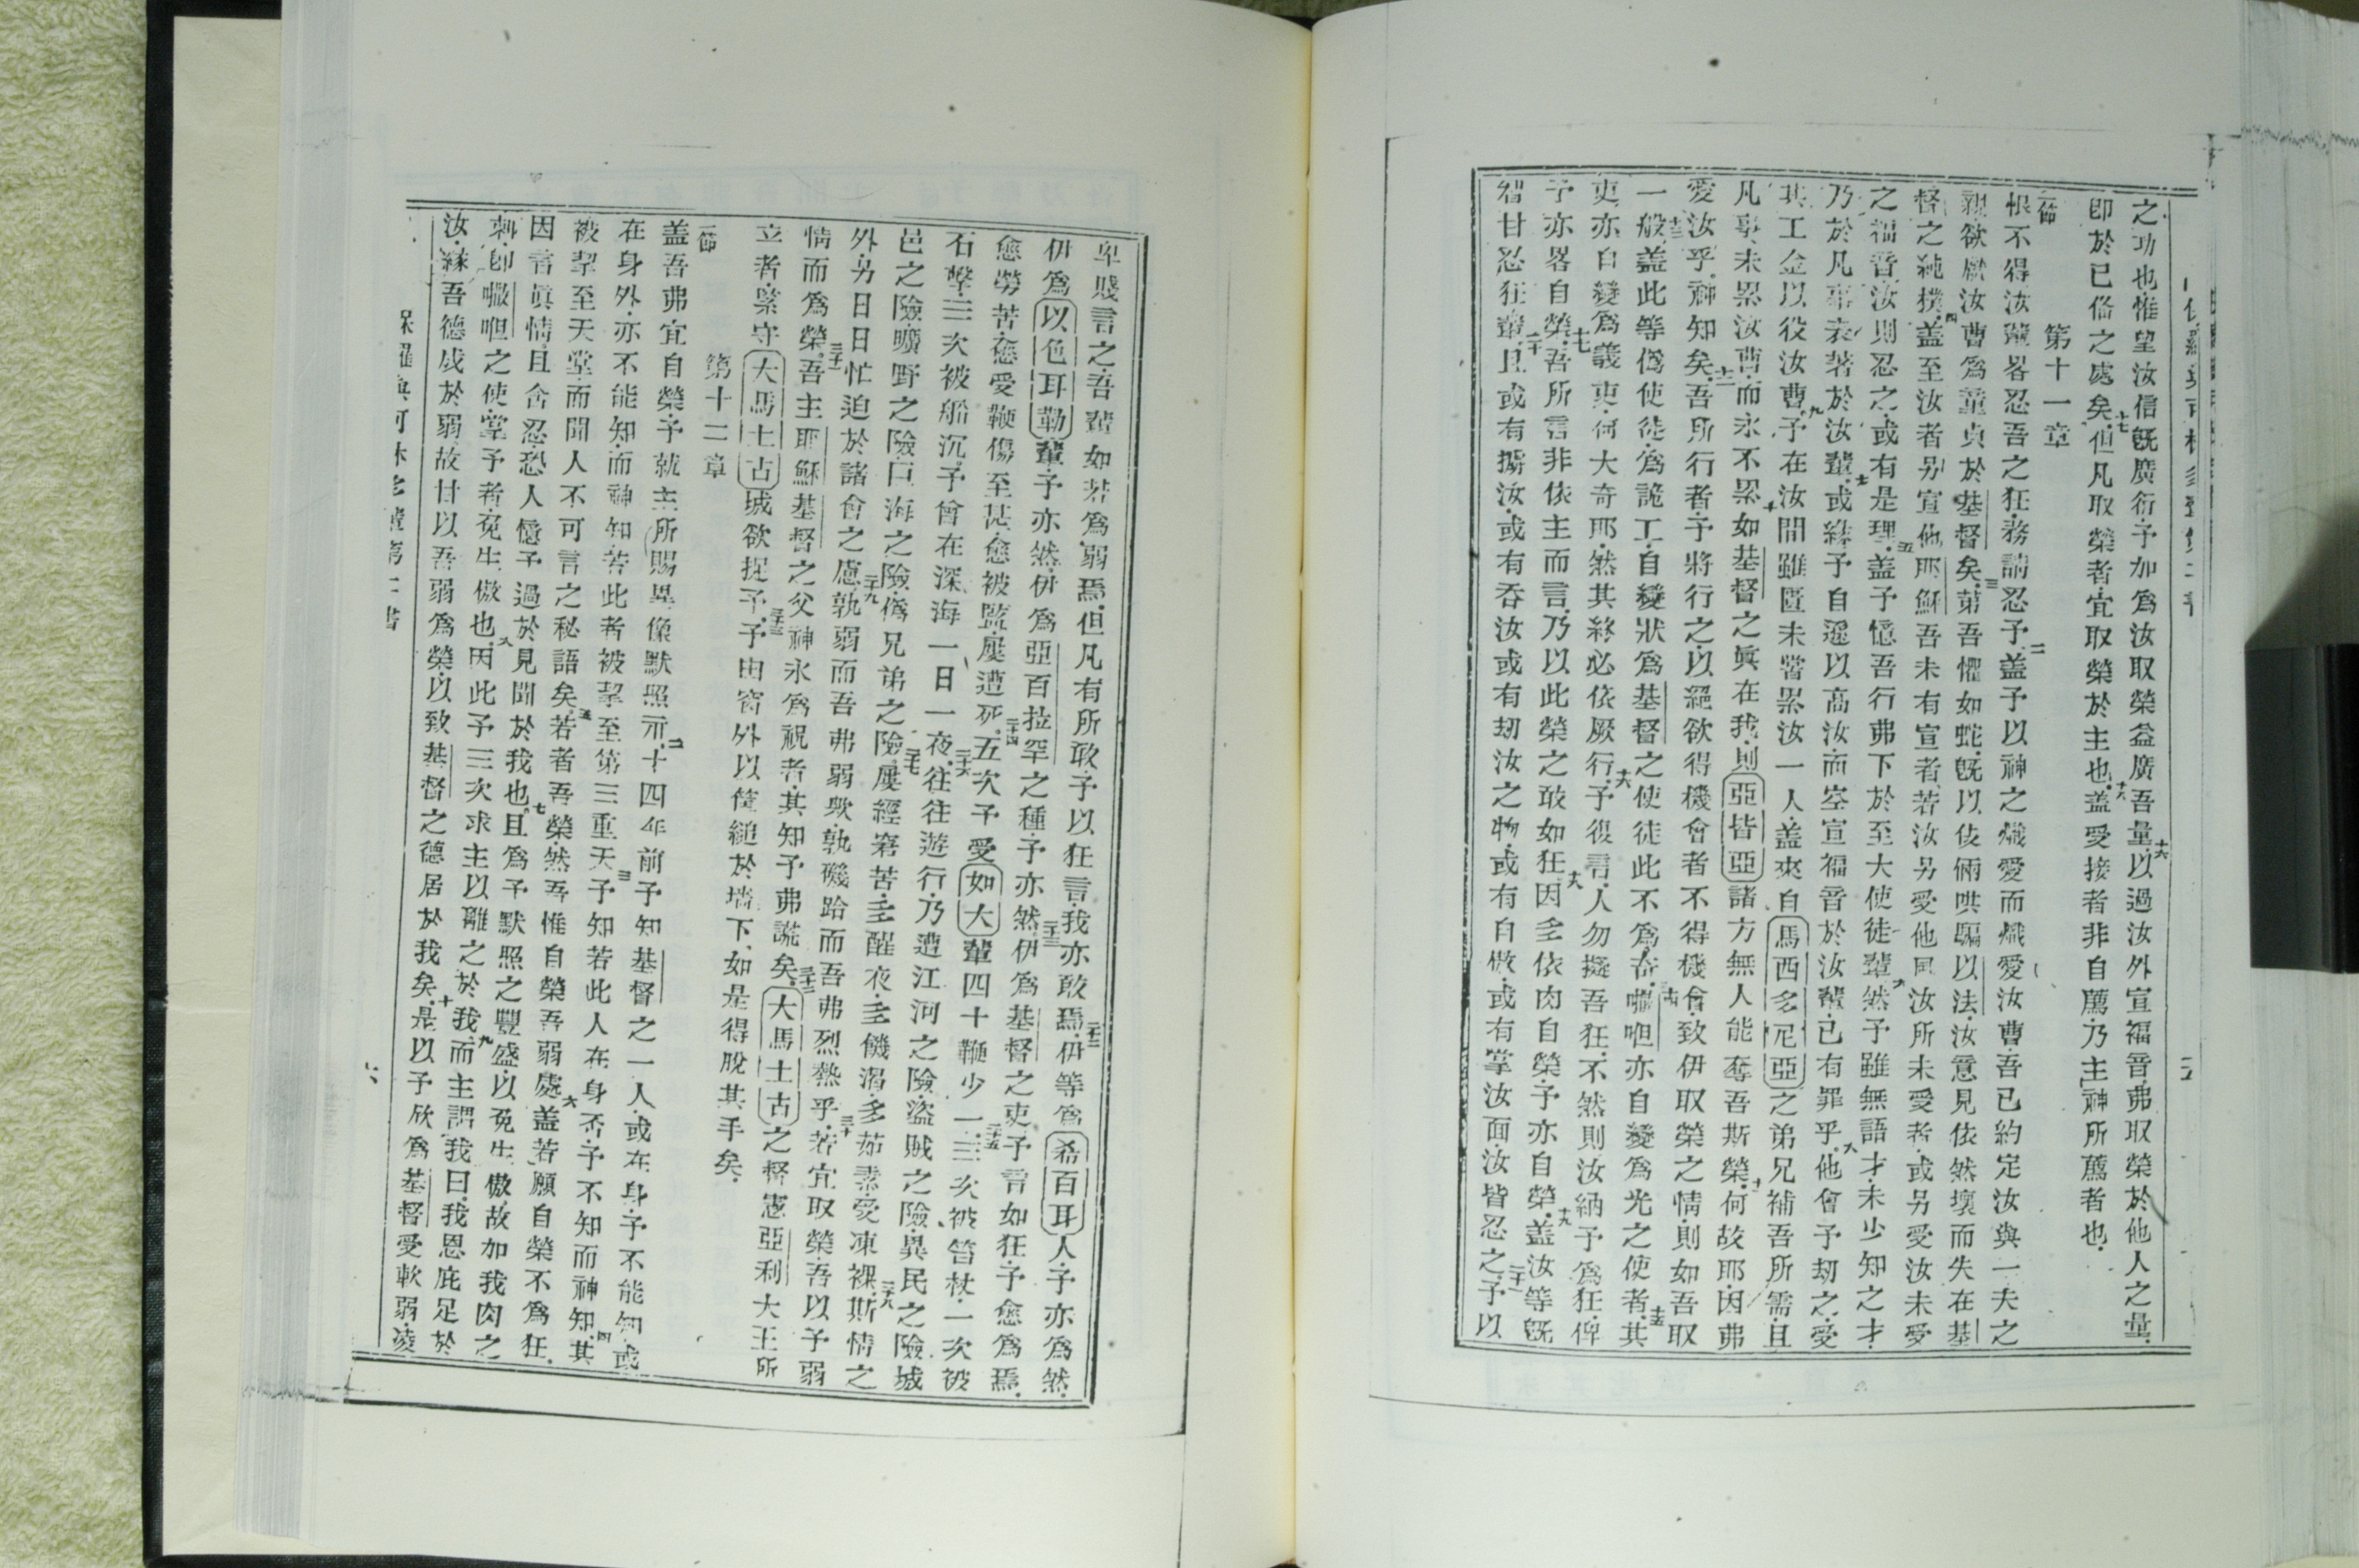 之功也惟望汝信旣廣衍予加爲汝取榮益廣吾量十六以過汝外宣福音弗取榮於他人之量
卽於已俻之處矣十七但凡取榮者宜取榮於主也十八盖受接者非自薦乃主神所薦者也
第十一章
一節
恨不得汝輩畧忍吾之狂務請忍予二盖予以神之熾愛而熾愛汝曹吾已約定汝與一夫之
親欲獻汝曹爲童貞於基督矣三第吾懼如蛇旣以伎倆哄騙以法汝意見依然壞而失在基
督之純樸四盖至汝者另宣他耶穌吾未有宣者若汝另受他風汝所未受者或另受汝未受
之福音汝則忍之或有是理五盖予憶吾行弗下於至大使徒輩六然予雖無語才未少知之才
乃於凡事表著於汝輩七或緣予自遜以高汝而空宣福音於汝輩已有罪乎八他會予刼之受
其工金以役汝曹九予在汝間雖匱未嘗累汝一人盖來自馬西多尼亞之弟兄補吾所需且
凡事未累汝曹而永不累十如基督之眞在我則亞皆亞諸方無人能奪吾斯榮十一何故耶因弗
愛汝乎神知矣十二吾所行者予將行之以絕欲得機會者不得機會致伊取榮之情則如吾取
一般十三盖此等僞使徒爲詭工自變狀爲基督之使徒此不爲奇十四囇呾亦自變爲光之使者十五其
吏亦自變爲義吏何大奇耶然其終必依厥行十六予復言人勿擬吾狂不然則汝納予爲狂俾
予亦畧自榮十七吾所言非依主而言乃以此榮之敢如狂十八因多依肉自榮予亦自榮十九盖汝等旣
智甘忍狂輩二十且或有擄汝或有吞汝或有刼汝之物或有自傲或有掌汝面汝皆忍之二十一予以
卑賤言之吾輩如若爲弱焉但凡有所敢予以狂言我亦敢焉二十二伊等爲希百耳人予亦爲然
伊爲以色耳勒輩予亦然伊爲亞百拉罕之種予亦然二十三伊爲基督之吏予言如狂予愈爲焉
愈勞苦愈受鞭傷至甚愈被監屢遭死二十四五次予受如大輩四十鞭少一二十五三次被笞杖一次被
石擊三次被船沉予曾在深海一日一夜二十六往往遊行乃遭江河之險盜賊之險異民之險城
邑之險曠野之險口海之險僞兄弟之險二十七屢經窘苦多醒夜多饑渴多茹素受凍裸二十八斯情之
外另日日忙迫於諸會之慮二十九孰弱而吾弗弱歟孰磯跲而吾弗烈熱乎三十若宜取榮吾以予弱
情而爲榮三十一吾主耶穌基督之父神永爲祝者其知予弗謊矣三十二大馬士古之督憲亞利大王所
立者嚴守大馬士古城欲捉予三十三予由窗外以筐縋於墻下如是得脫其手矣
第十二章
一節
盖吾弗宜自榮予就主所賜異像默照示二十四年前予知基督之一人或在身予不能知或
在身外亦不能知而神知若此者被挈至第三重天三予知若此人在身否予不知而神知四其
被挈至天堂而聞人不可言之秘語矣五若者吾榮然吾惟自榮吾弱處六盖若願自榮不爲狂
因言眞情且含忍恐人憶予過於見聞於我也七且爲予默照之豐盛以免生傲故加我肉之
刺卽囇呾之使掌予者免生傲也八因此予三次求主以離之於我九而主謂我曰我恩庇足於
汝緣吾德成於弱故甘以吾弱爲榮以致基督之德居於我矣十是以予欣爲基督受軟弱凌